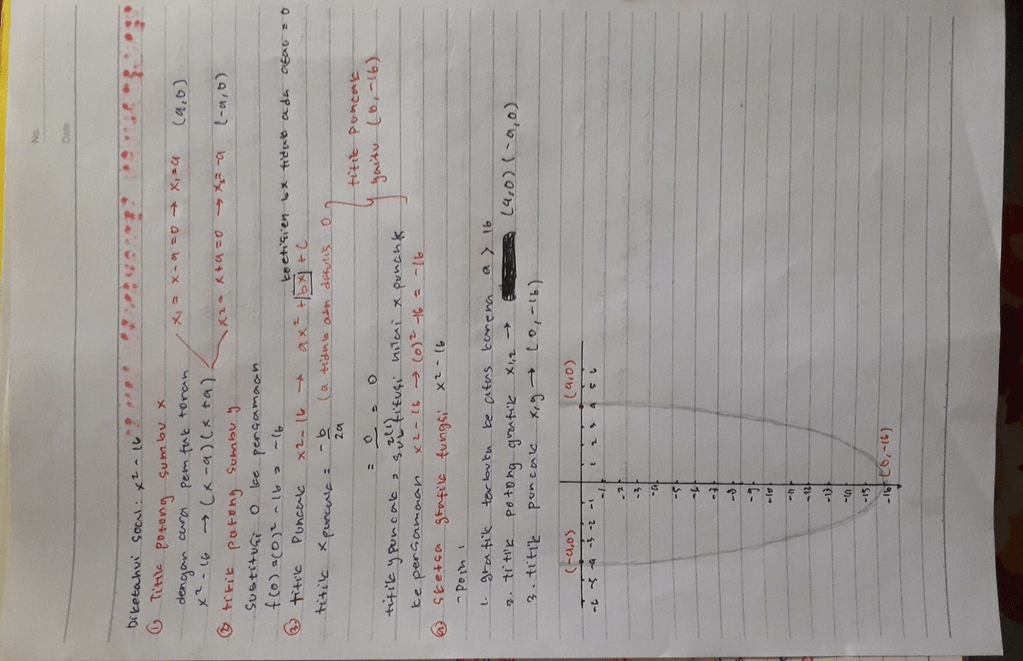 No.
Date
Diketahui soal : x² - 16
① Titik potong sumbu x
dengan cara pemfaktoran
x² - 16 → (x - 4) (x + 4)
x₁ = x - 4 = 0 → x₁ = 4 (4,0)
x₂ = x + 4 = 0 → x₂ = -4 (-4,0)
② titik potong sumbu y
substitusi 0 ke persamaan
f(0) = (0)² - 16 = -16
③ titik puncak x² - 16 → ax² + bx + c
koefisien bx tidak ada atau = 0
titik x puncak = -b/2a (a tidak ditulis
= 0/2(1) = 0
titik y puncak = substitusi nilai x puncak
ke persamaan x² - 16 → (0)² - 16 = -16
titik puncak
yaitu (0, -16)
④ sketsa grafik fungsi x² - 16
- Poin :
1. grafik terbuka ke atas karena a > 16
2. titik potong grafik x1,2 → (4,0) (-4,0)
3. titik puncak x,y → (0, -16)
(-4,0) (4,0)
-6 -5 -4 -3 -2 -1 1 2 3 4 5 6
-1
-2
-3
-4
-5
-6
-7
-8
-9
-10
-11
-12
-13
-14
-15
-16 (0, -16)